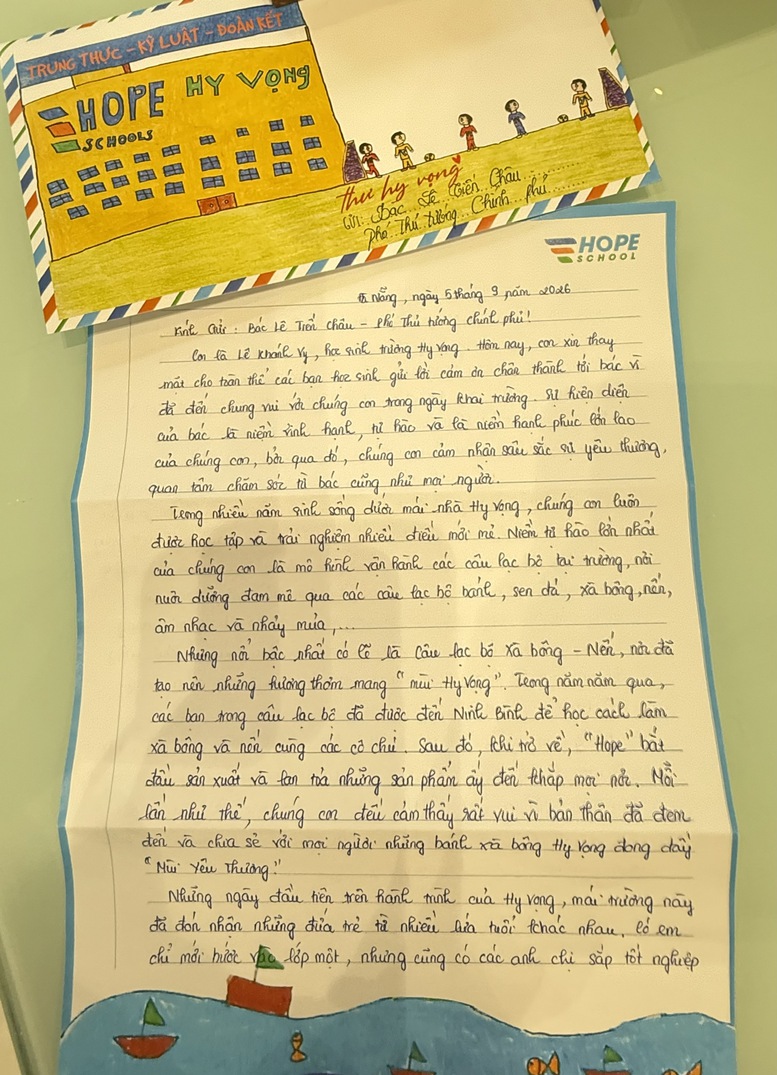 TRUNG THỰC - KỶ LUẬT - ĐOÀN KẾT
HOPE HY VỌNG
SCHOOLS
thư hy vọng
Gửi: Bác Lê Tiến Châu
Phó Thủ tướng Chính phủ
HOPE
SCHOOL
Đà Nẵng, ngày 5 tháng 9 năm 2026
Kính Gửi: Bác Lê Tiến Châu - Phó Thủ tướng chính phủ!
Con là Lê Khánh Vy, học sinh trường Hy Vọng. Hôm nay, con xin thay
mặt cho toàn thể các bạn học sinh gửi lời cảm ơn chân thành tới bác vì
đã đến chung vui với chúng con trong ngày khai trường. Sự hiện diện
của bác là niềm vinh hạnh, tự hào và là niềm hạnh phúc lớn lao
của chúng con, bởi qua đó, chúng con cảm nhận sâu sắc sự yêu thương,
quan tâm chăm sóc từ bác cũng như mọi người.
Trong nhiều năm sinh sống dưới mái nhà Hy Vọng, chúng con luôn
được học tập và trải nghiệm nhiều điều mới mẻ. Niềm tự hào lớn nhất
của chúng con là mô hình vận hành các câu lạc bộ tại trường, nơi
nuôi dưỡng đam mê qua các câu lạc bộ bánh, sen đá, xà bông, nến,
âm nhạc và nhảy múa,...
Nhưng nổi bậc nhất có lẽ là Câu lạc bộ Xà bông - Nến, nơi đã
tạo nên những hương thơm mang "mùi Hy Vọng". Trong năm năm qua,
các bạn trong câu lạc bộ đã được đến Ninh Bình để học cách làm
xà bông và nến cùng các cô chú. Sau đó, khi trở về, "Hope" bắt
đầu sản xuất và lan tỏa những sản phẩm ấy đến khắp mọi nơi. Mỗi
lần như thế, chúng con đều cảm thấy rất vui vì bản thân đã đem
đến và chia sẻ với mọi người những bánh xà bông Hy Vọng đong đầy
"Mùi Yêu Thương!"
Những ngày đầu tiên trên hành trình của Hy Vọng, mái trường này
đã đón nhận những đứa trẻ từ nhiều lứa tuổi khác nhau. Có em
chỉ mới bước vào lớp một, nhưng cũng có các anh chị sắp tốt nghiệp